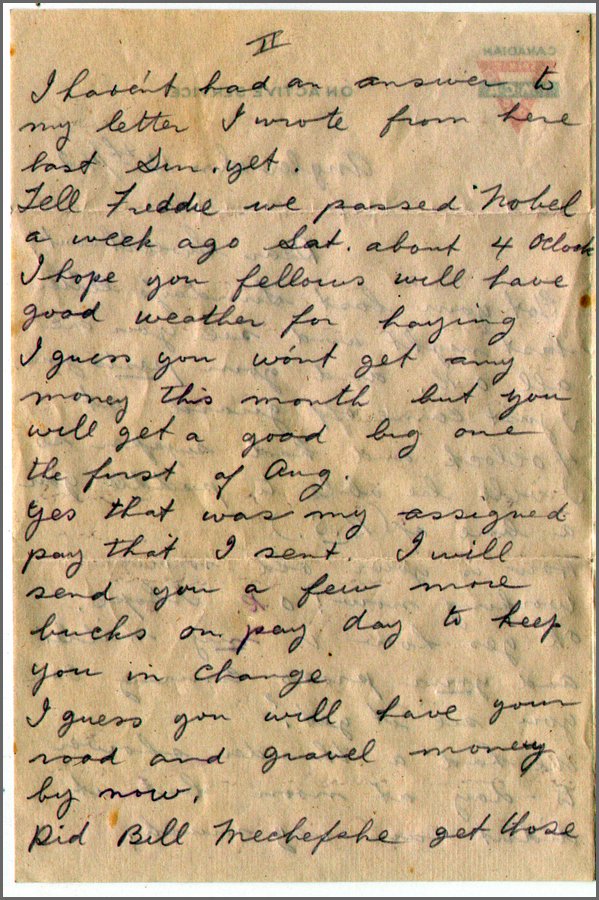 II
I haven't had an answer to
my letter I wrote from here
last Sun. yet.
Tell Freddie we passed Nobel
a week ago Sat. about 4 OClock
I hope you fellows will have
good weather for haying
I guess you won't get any
money this month but you
will get a good big one
the first of Aug.
Yes that was my assigned
pay that I sent. I will
send you a few more
bucks on pay day to keep
you in change
I guess you will have your
road and gravel money
by now.
Did Bill get those